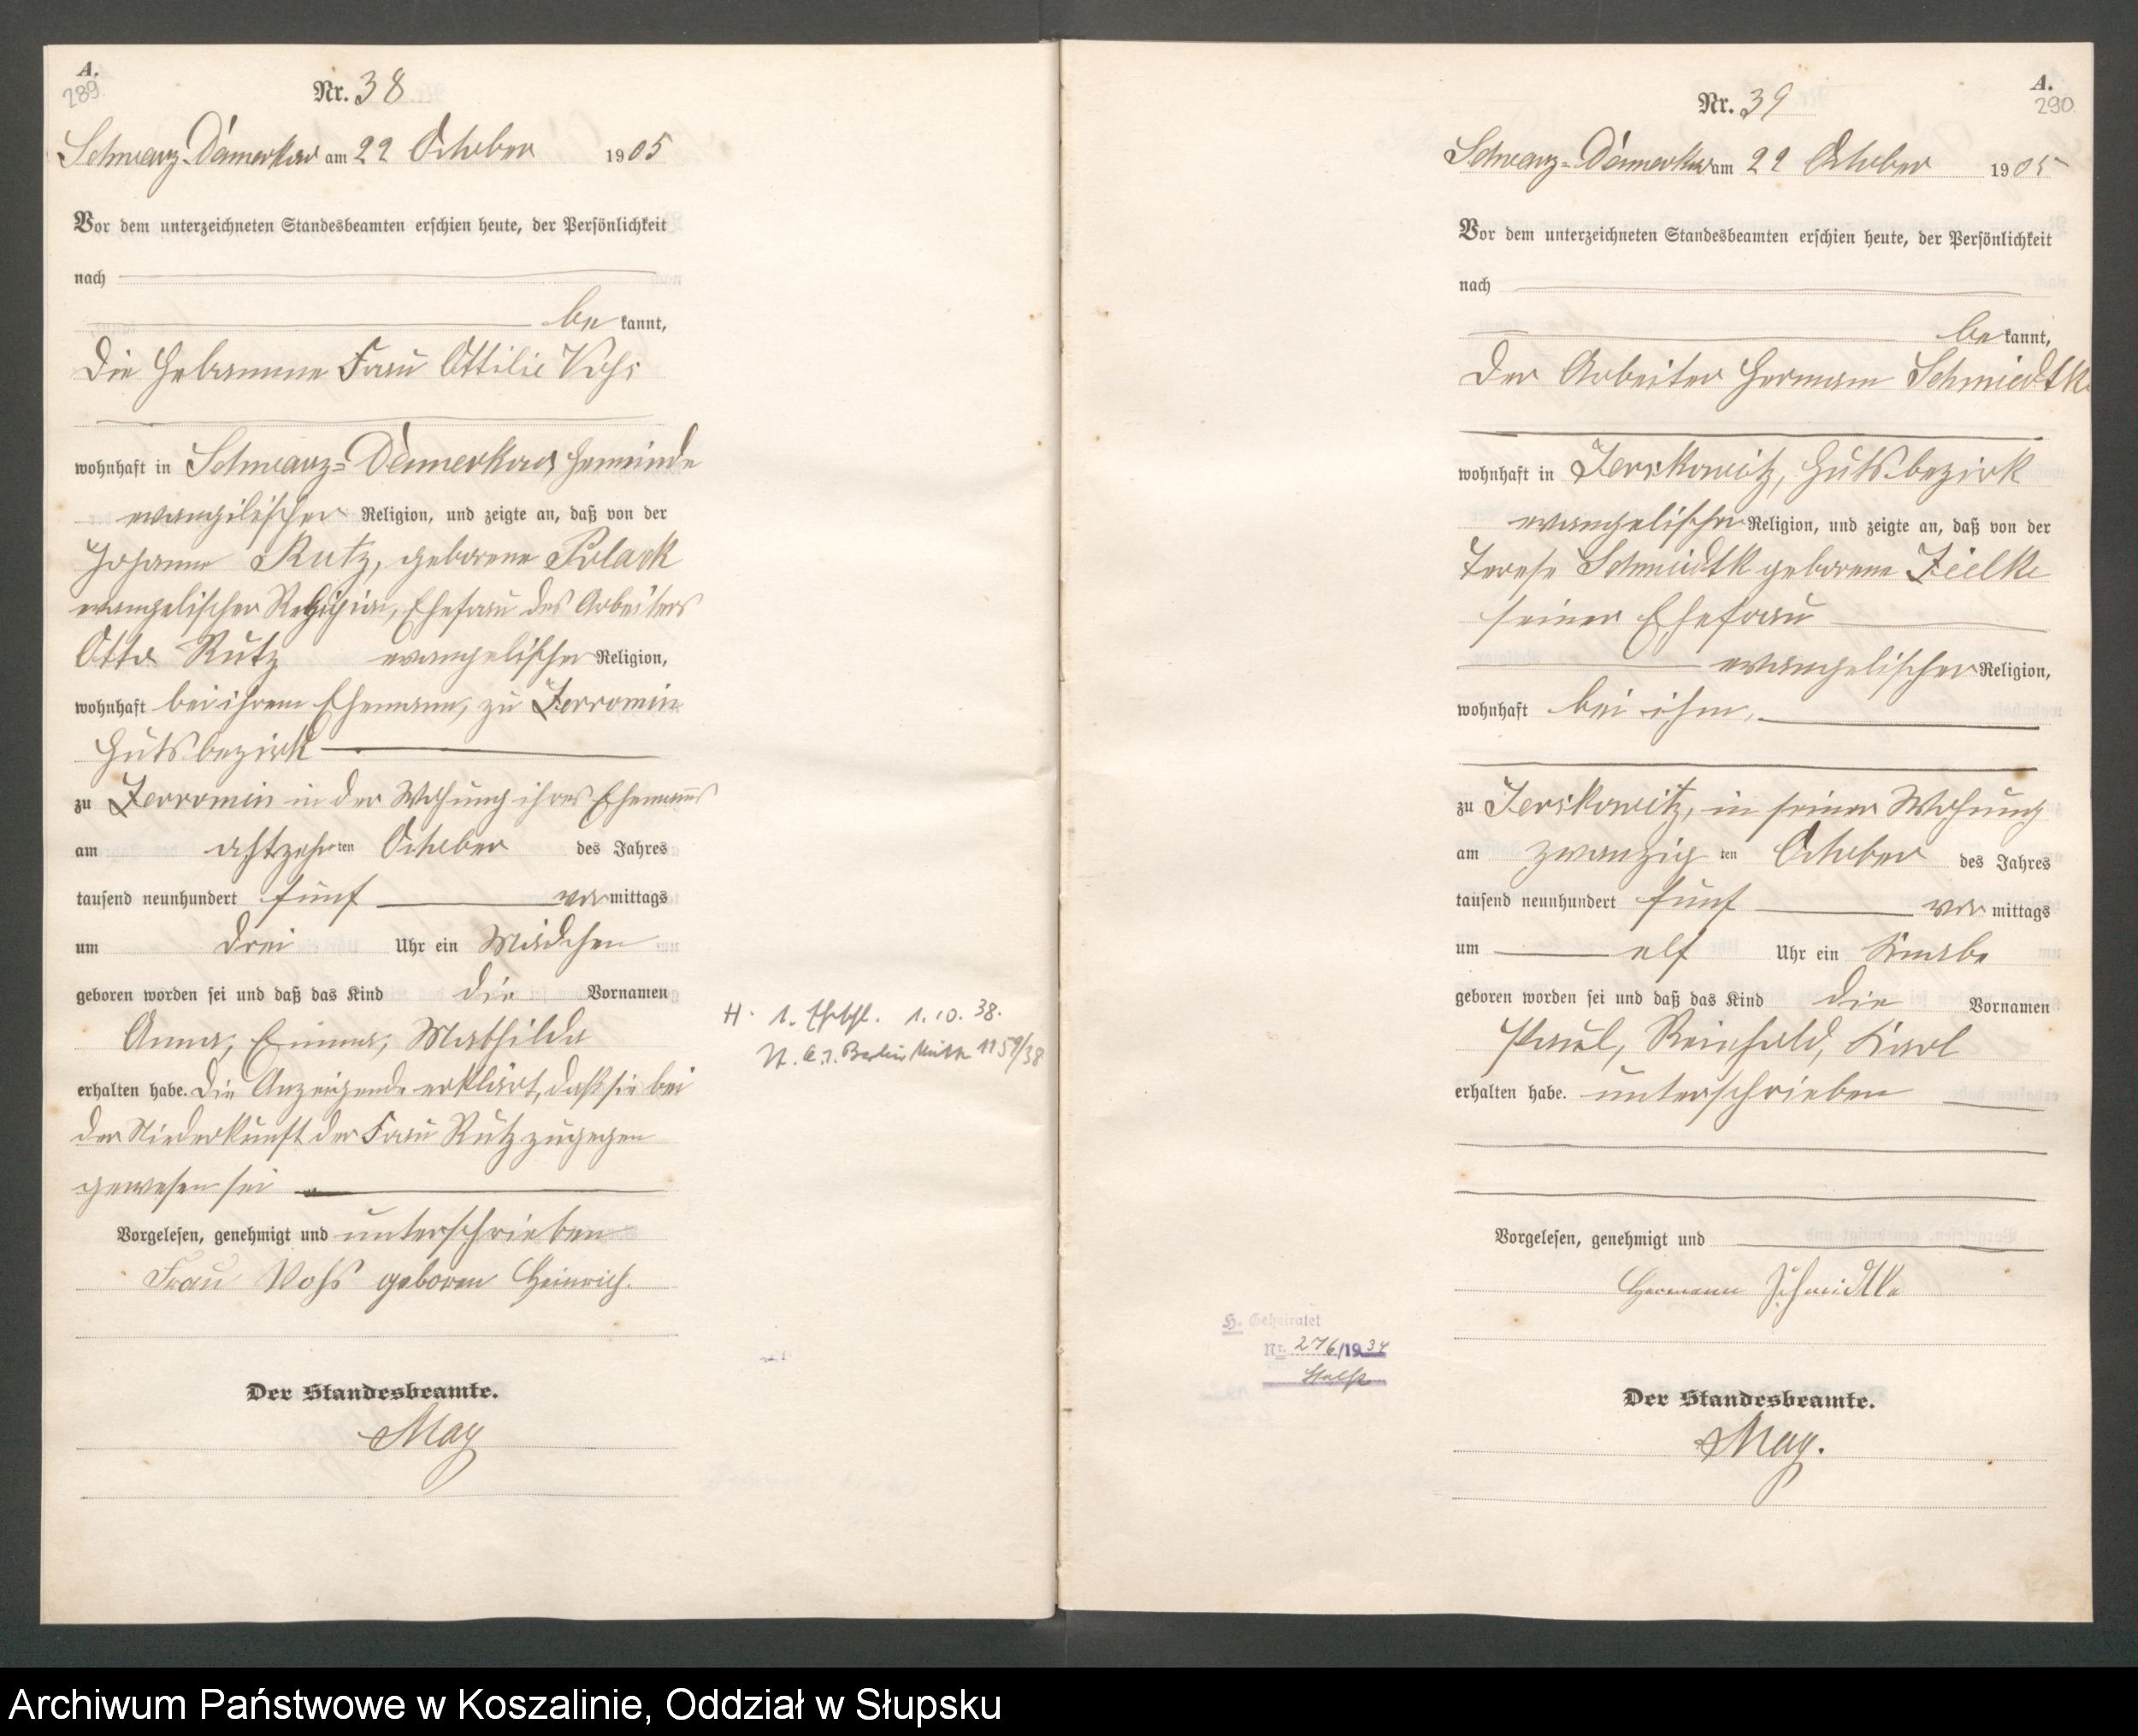 A.
289
Nr. 38
Schwarz-Damerkow am 22 October 1905
Vor dem unterzeichneten Standesbeamten erschien heute, der Persönlichkeit
nach
be kannt,
die Hebamme Frau Ottilie Vohs
wohnhaft in Schwarz-Damerkow Gemeinde
evangelischer Religion, und zeigte an, daß von der
Johanne Rutz, geborene Polack
evangelischer Religion, Ehefrau des Arbeiters
Otto Rutz evangelischer Religion,
wohnhaft bei ihrem Ehemann, zu Zerromin
Gutsbezirk
zu Zerromin in der Wohnung ihres Ehemanns
am achtzehnten October des Jahres
tausend neunhundert fünf vormittags
um drei Uhr ein Mädchen
geboren worden sei und daß das Kind die Vornamen
Anna, Emma, Mathilde
erhalten habe. Die Anzeigende erklärt, daß sie bei
der Niederkunft der Frau Rutz zugegen
gewesen sei
Vorgelesen, genehmigt und unterschrieben
Frau Vohs geboren Heinrich.
Der Standesbeamte.
May
H. 1. 1.10.38.
Berlin 1159/38
A.
290
Nr. 39
Schwarz-Damerkow am 22 October 1905
Vor dem unterzeichneten Standesbeamten erschien heute, der Persönlichkeit
nach
be kannt,
der Arbeiter Hermann Schmidtke
wohnhaft in Jerskowitz, Gutsbezirk
evangelischer Religion, und zeigte an, daß von der
Terese Schmidtk geborene Zielke
seiner Ehefrau
evangelischer Religion,
wohnhaft bei ihm,
zu Jerskowitz, in seiner Wohnung
am zwanzigten October des Jahres
tausend neunhundert fünf vor mittags
um elf Uhr ein Knabe
geboren worden sei und daß das Kind die Vornamen
Paul, Reinhold, Karl
erhalten habe. unterschrieben
Vorgelesen, genehmigt und
Hermann Schmidtke
H. Geheiratet
Nr. 276/1934
Der Standesbeamte.
May.
Archiwum Państwowe w Koszalinie, Oddział w Słupsku